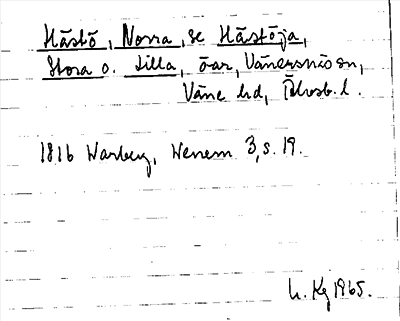 Hästö, Norra, se Hästöja,
Stora o. Lilla, öar, Vänersnäs sn,
Väne hd, Älvsb. l.
1816 Warberg, Wenern 3, s. 19.
L. Kg 1965.